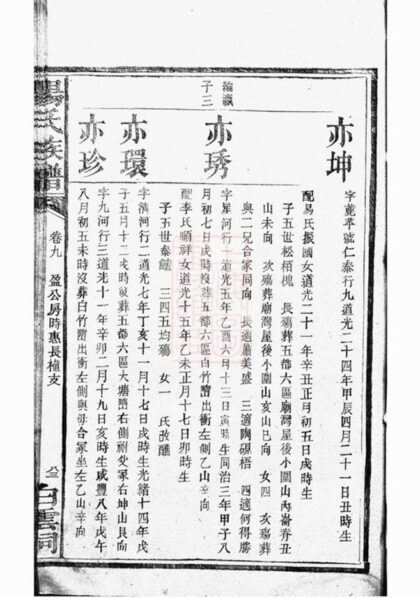 亦坤
字蓖亭號仁泰行九道光二十四年甲辰四月二十一日丑時生
配易氏振國女道光二十一年辛丑正月初五日戌時生
子五世松栢槐 長殤葬五都六區廟灣屋後小圍山內崙夲丑
山未向 次殤葬廟灣屋後小圍山亥山巳向 女四 次殤葬
與二兄合冢同向 長適蕭美盛 三適陶硯梧 四適何得勝
亦琇
字星河行一道光五年乙酉六月十三日寅時生同治三年甲子八
月初七日戌時沒葬五都六區白竹嶝出衝左側乙山辛向
配李氏順祥女道光十五年乙未正月十七日卯時生
子五世泰 三四五均殤 女一 氏改醮
亦環
字清河行二道光七年丁亥十一月十七日戌時生光緒十四年戊
子五月十二戌時沒葬五都六區大塘嶝右側祔父冢右坤山艮向
亦珍
字九河行三道光十一年辛卯二月十九日亥時生咸豐八年戊午
八月初五未時沒葬白竹嶝出衝左側與母合冢坐左乙山辛向
綸瀛
子三
楊氏族譜
卷九 盈公房時惠長植支
白雲祠